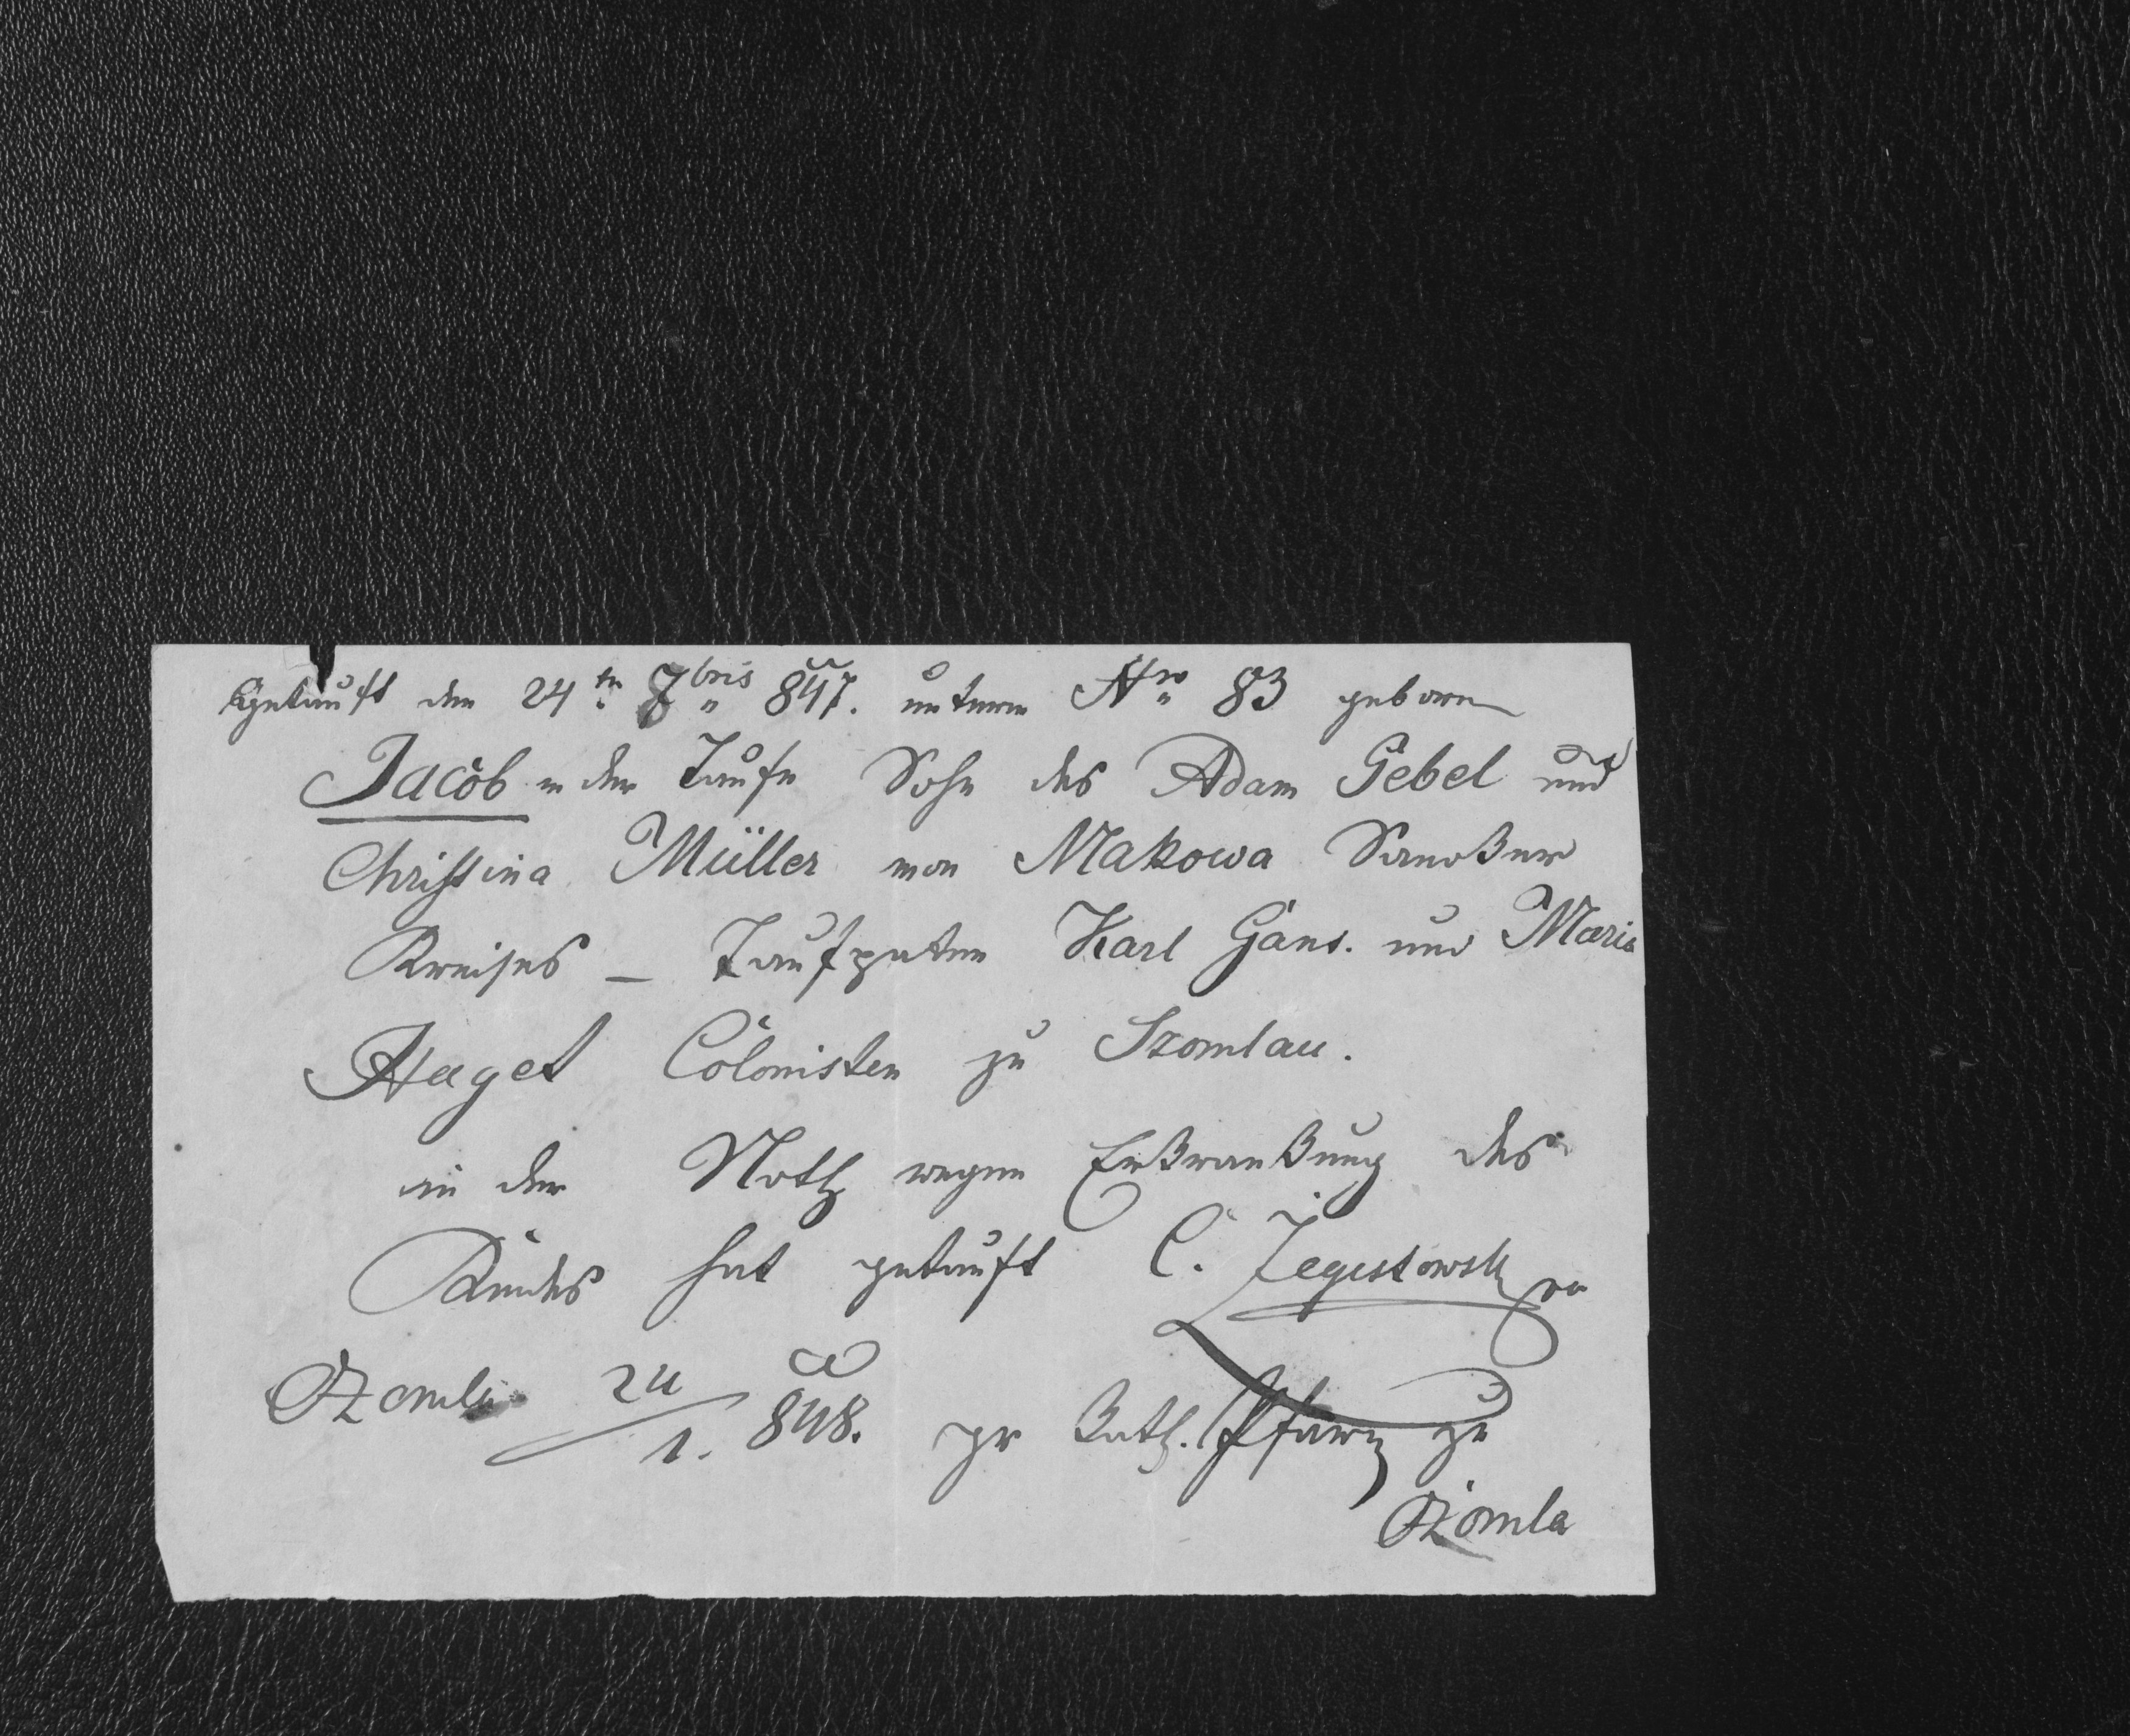 Getauft den 24ten 7bris 847. unterm Nro 83 geboren
Jacob in der Taufe Sohn des Adam Gebel und
Christina Müller von Makowa Sanoker
Kreises — Taufpaten Karl Gans. und Maria
Haget Colonisten zu Szomlau.
in der Noth wegen Erkrankung des
Kindes hat getauft C. Zegestowski
24/1. 848. gr kath. Pfarrer zu